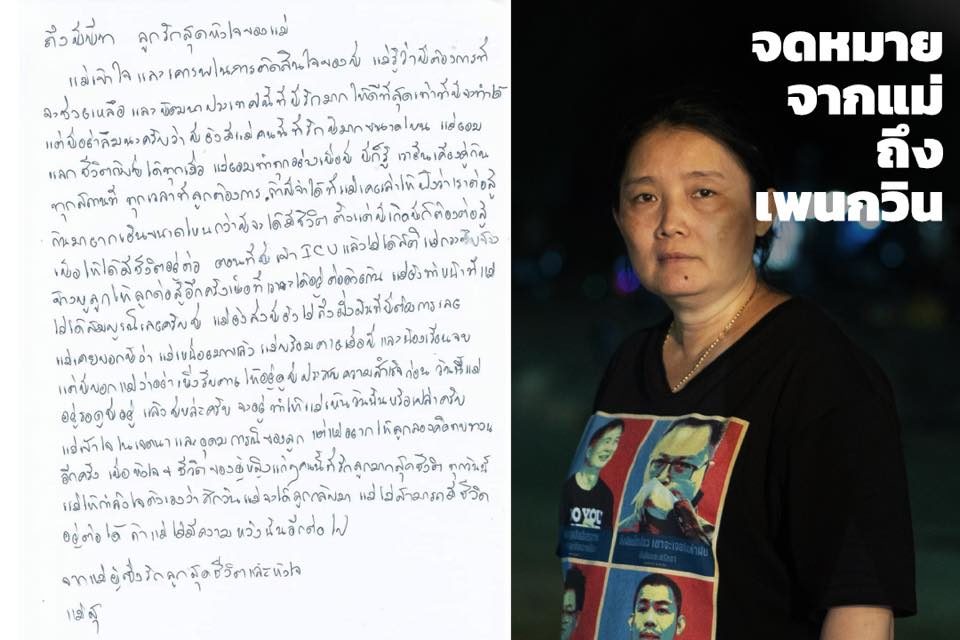 ถึงพี่พีท ลูกรักสุดหัวใจของแม่
แม่เข้าใจ และเคารพในการตัดสินใจของพี่ แม่รู้ว่าพี่ต้องการที่
จะช่วยเหลือ และพัฒนาประเทศนี้ที่พี่รักมาก ให้ดีที่สุดเท่าที่พี่จะทำได้
แต่พี่อย่าลืมนะครับว่า พี่ยังมีแม่คนนี้ที่รักพี่มากขนาดไหน แม่ยอม
แลกชีวิตกับพี่ได้ทุกเมื่อ แม่ยอมทำทุกอย่างเพื่อพี่ พี่ก็รู้ เรายืนเคียงคู่กัน
ทุกสถานที่ ทุกเวลาที่ลูกต้องการ พี่จำได้ที่แม่เคยเล่าให้ฟังว่าเราต่อสู้
กันมายากเย็นขนาดไหนกว่าพี่จะได้มีชีวิต ตั้งแต่พี่เกิดพี่ก็ต้องต่อสู้
เพื่อให้ได้มีชีวิตอยู่ต่อ ตอนที่พี่เข้า ICU แล้วไม่ได้สติ แม่กระซิบ
ข้างหูลูกให้ลูกต่อสู้อีกครั้งเพื่อที่เราจะได้อยู่ต่อด้วยกัน แม่ยังทำหน้าที่แม่
ไม่ได้สมบูรณ์เลยครับพี่ แม่ยังส่งพี่ยังไม่ถึงฝั่งฝันที่พี่ต้องการเลย
แม่เคยบอกพี่ว่า แม่เหนื่อยมากแล้ว แม่พร้อมตายเมื่อพี่ และน้องเรียนจบ
แต่พี่บอกแม่ว่าอย่าเพิ่งรีบตาย ให้อยู่ดูพี่ประสบความสำเร็จก่อน วันนี้แม่
อยู่รอดูพี่อยู่ แล้วพี่หล่ะครับ จะอยู่ทำให้แม่เห็นวันนั้นหรือเปล่าครับ
แม่เข้าใจในเจตนา และอุดมการณ์ของลูก แต่แม่อยากให้ลูกลองคิดทบทวน
อีกครั้ง เพื่อหัวใจ + ชีวิต ของผู้หญิงแก่ๆคนนี้ที่รักลูกมากสุดชีวิต ทุกวันนี้
แม่ให้กำลังใจตัวเองว่าซักวันแม่จะได้ลูกกลับมา แม่ไม่สามารถมีชีวิต
อยู่ต่อได้ ถ้าแม่ไม่มีความหวังนั้นอีกต่อไป
จากแม่ผู้ซึ่งรักลูกสุดชีวิตและหัวใจ
แม่สุ
จดหมาย
จากแม่
ถึง
เพนกวิน
DO YOU